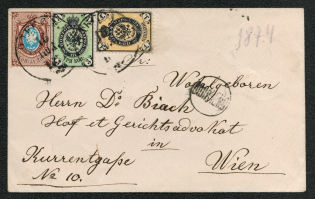 1874
Wohlgeboren
Herrn Dr. Biach
Hof et Gerichtsadvokat
in
Kurrentgaße Wien
No 10.